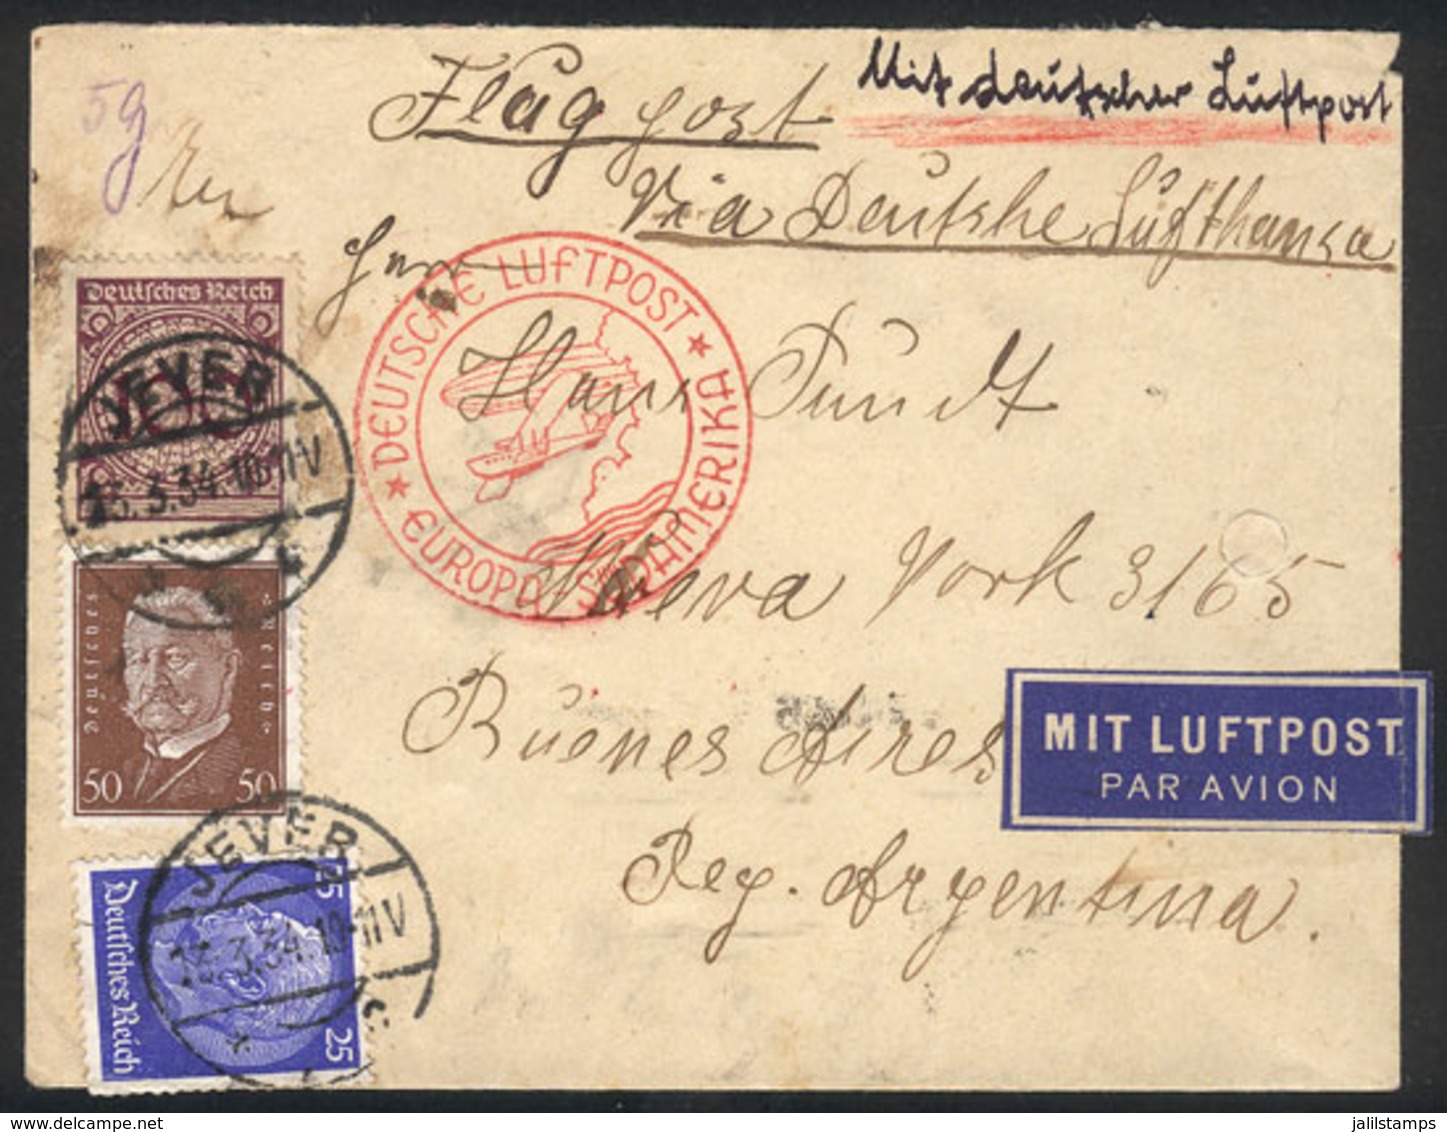 5g
Flugpost
Mit deutscher Luftpost
Via Deutshe Lufthansa
An
Herr
Hans Pundt
Nueva York 3165
Buenos Aires
Rep. Argentina.
* DEUTSCHE LUFTPOST *
EUROPA - SÜDAMERIKA
MIT LUFTPOST
PAR AVION
Deutsches Reich
100
JEVER
3.34.10-11V
Deutsches Reich
50 50
JEVER
3.34.10-11V
Deutsches Reich
25 25
delcampe.net
jalilstamps